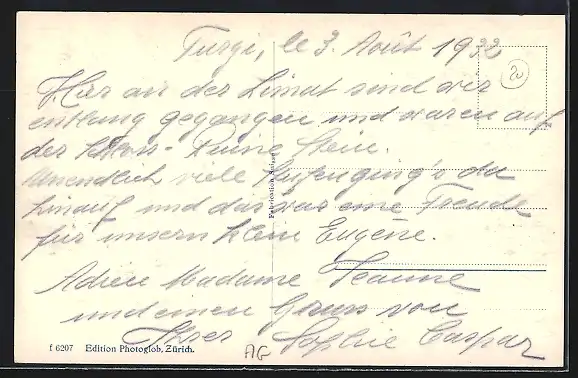 Turgi, le 3. Août 1932
20
Hier an der Limat sind wir
entlang gegangen und waren auf
der Schloss-Ruine Stein.
Unendlich viele Stufen ging's da
hinauf und das war eine Freude
für unsern kleinen Eugène.
Adieu Madame Jeanne
und einen Gruss von
Ihrer Sophie Caspar
Fabrication Suisse
f 6207 Edition Photoglob, Zürich.
AG